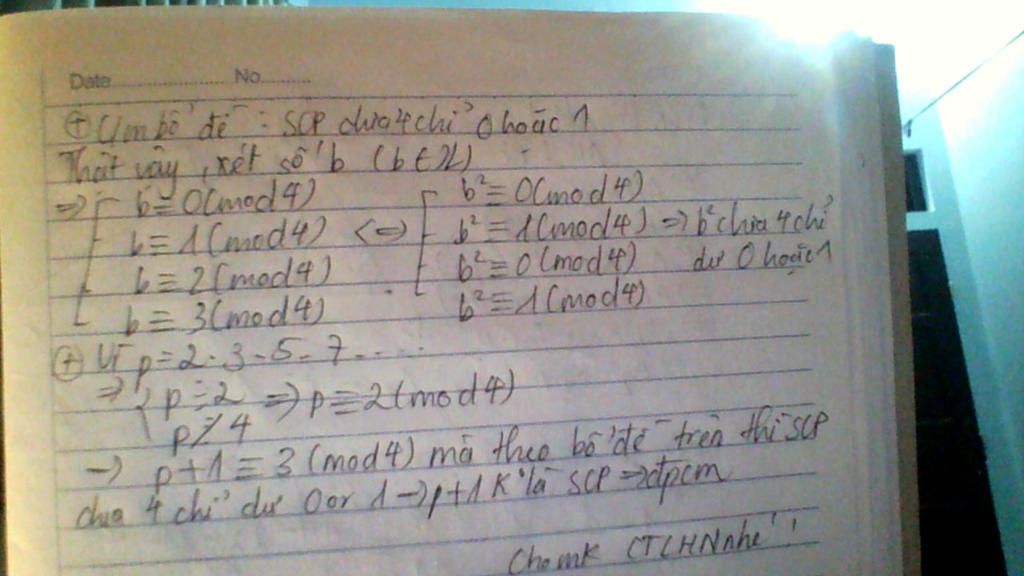 Date No
⊕ C/m bổ đề: SCP chia 4 chỉ 0 hoặc 1
Thật vậy, xét số b (b∈Z)
=> b ≡ 0 (mod 4) b² ≡ 0 (mod 4)
b ≡ 1 (mod 4) <=> b² ≡ 1 (mod 4) => b² chia 4 chỉ
b ≡ 2 (mod 4) b² ≡ 0 (mod 4) dư 0 hoặc 1
b ≡ 3 (mod 4) b² ≡ 1 (mod 4)
⊕ Vì p = 2.3.5.7.....
=> { p ⋮ 2 => p ≡ 2 (mod 4)
p ⋮̸ 4
-> p+1 ≡ 3 (mod 4) mà theo bổ đề trên thì SCP
chia 4 chỉ dư 0 or 1 -> p+1 K là SCP => đpcm
Cho mk CTLHN nhé!